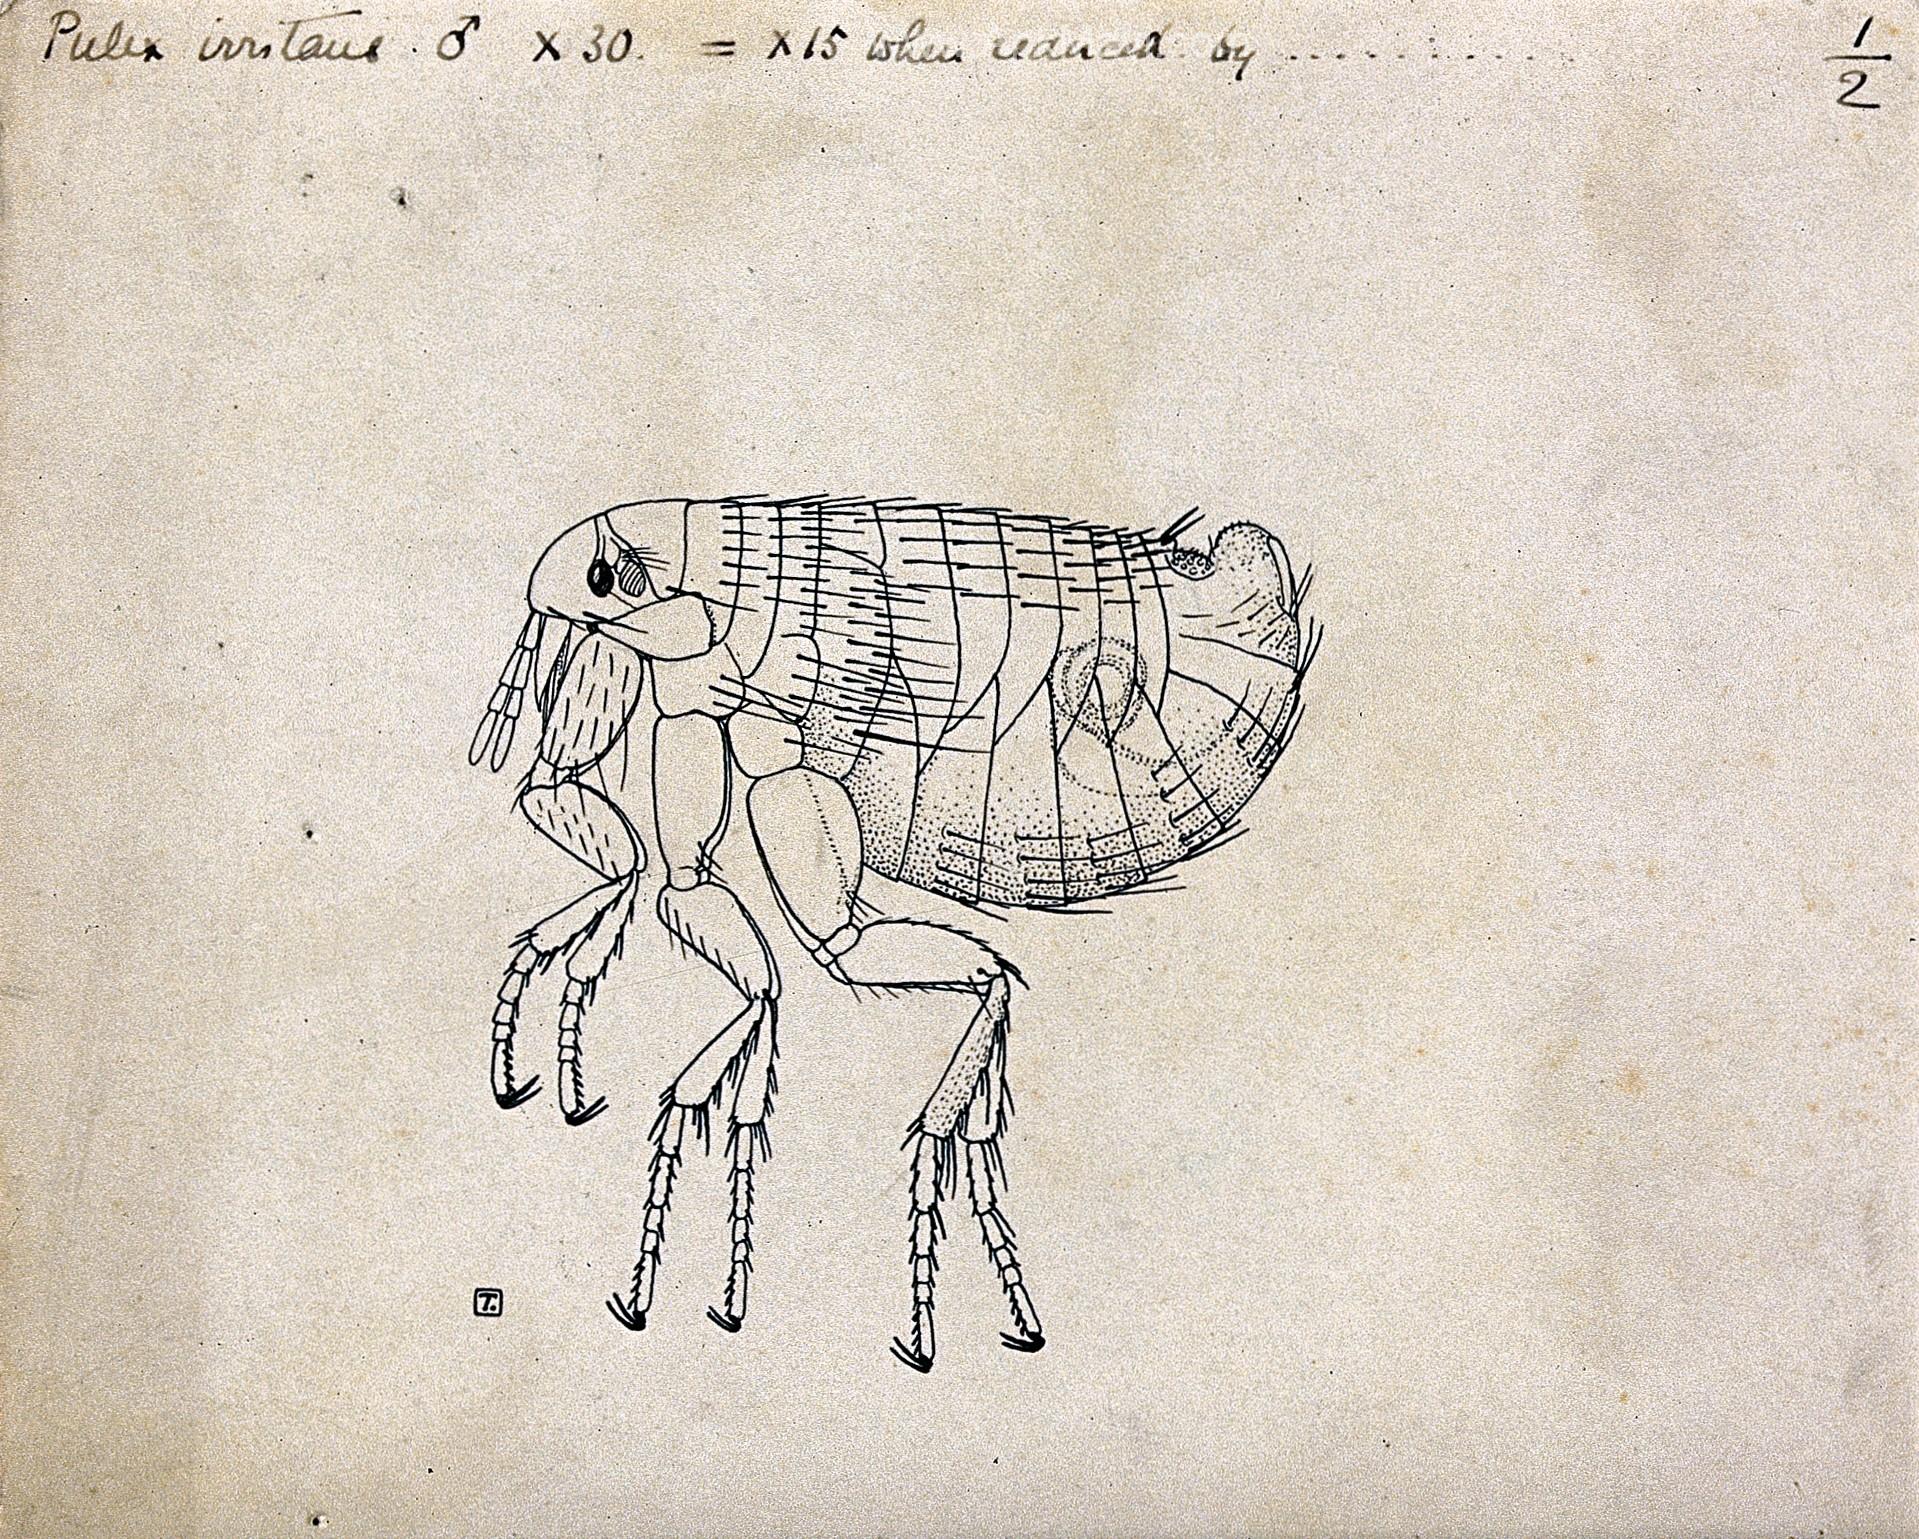 Pulex irritans ♂ × 30. = ×15 when reduced by ............ 1/2
T.